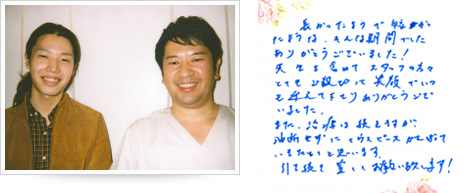 長かったようで短か
たような、そんな期間でした
ありがとうございました!
先生も含めてスタッフの方々
とても親切で笑顔でいつ
も 迎えて下さりありがとうござ
いました。
また、治療は続きますが、
油断せずにマウスピースがんばって
いきたいと思います。
引き続き 宜しくお願い致します!